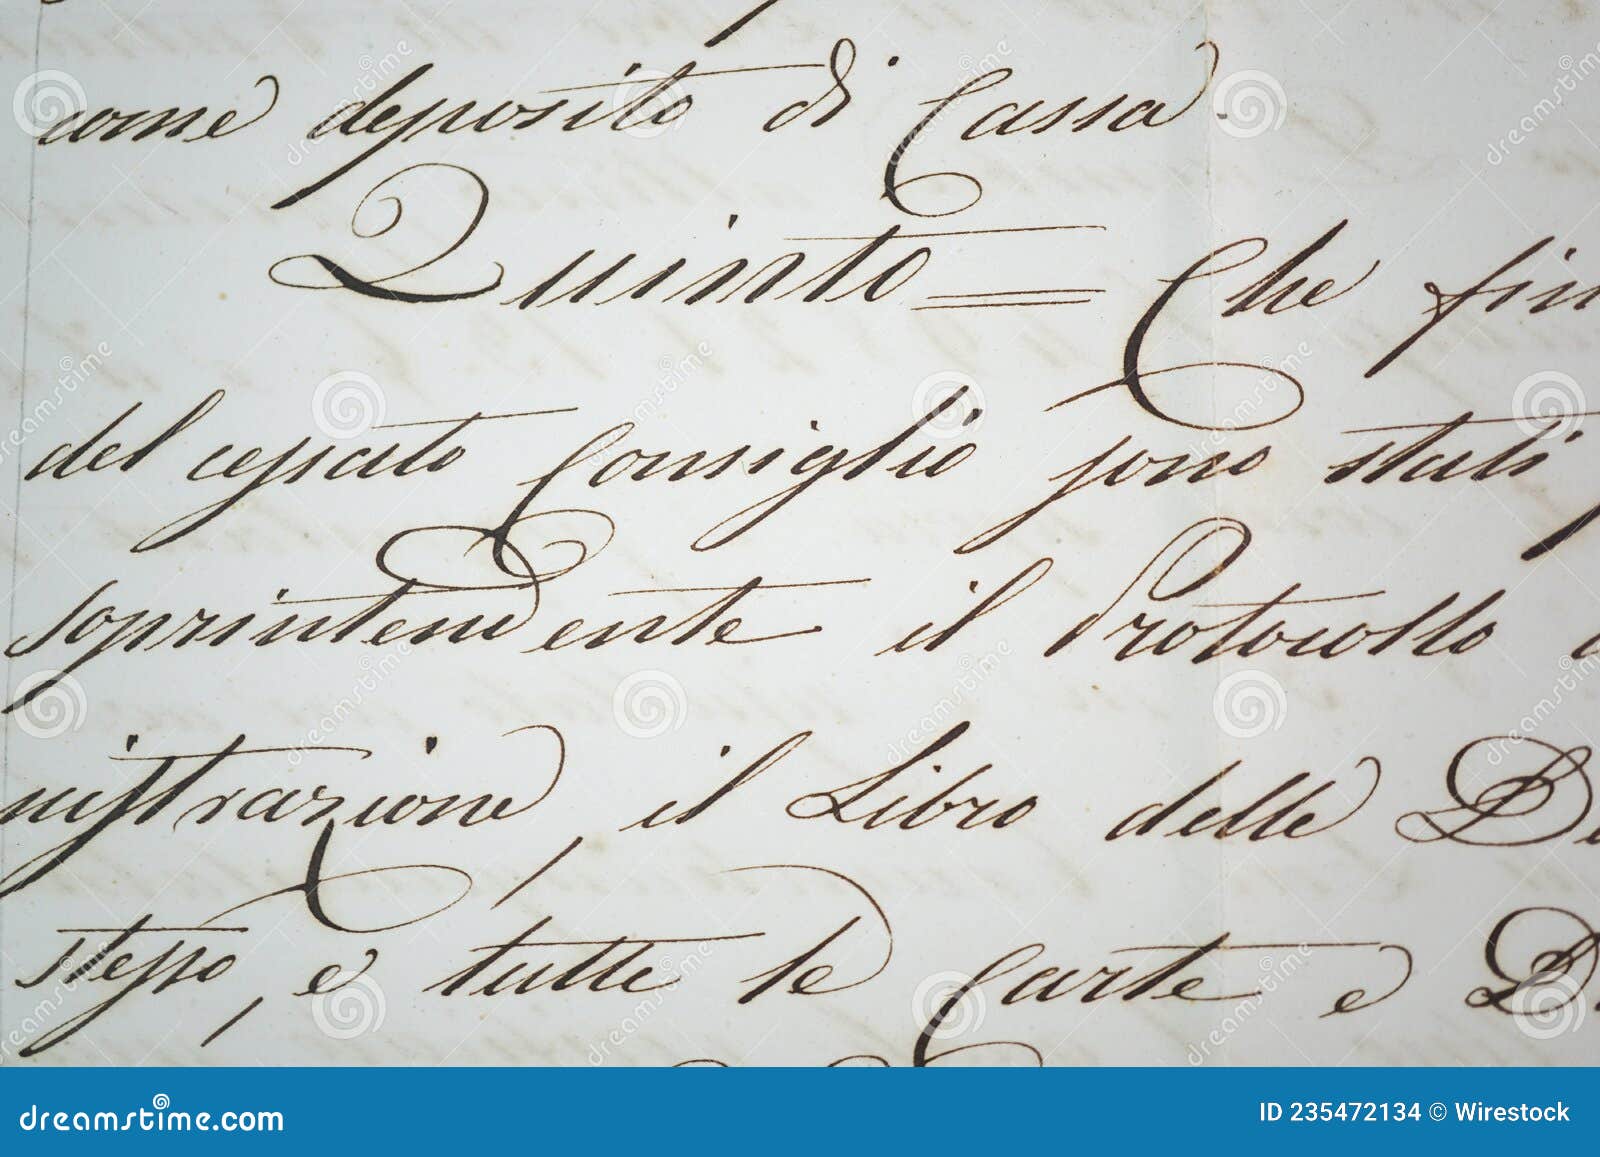 come deposito di Cassa.
Quinto = Che fin
del cessato Consiglio sono stati
soprintendente il Protocollo
nistrazione, il Libro delle De
stesso, e tutte le Carte e D
dreamstime.com
ID 235472134 © Wirestock